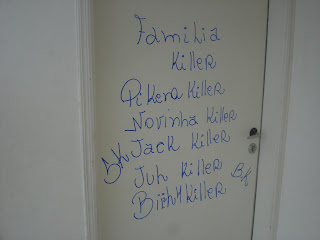 Familia
Killer
Pikena Killer
Novinha Killer
BK Jack Killer
Juh Killer BK
Killer